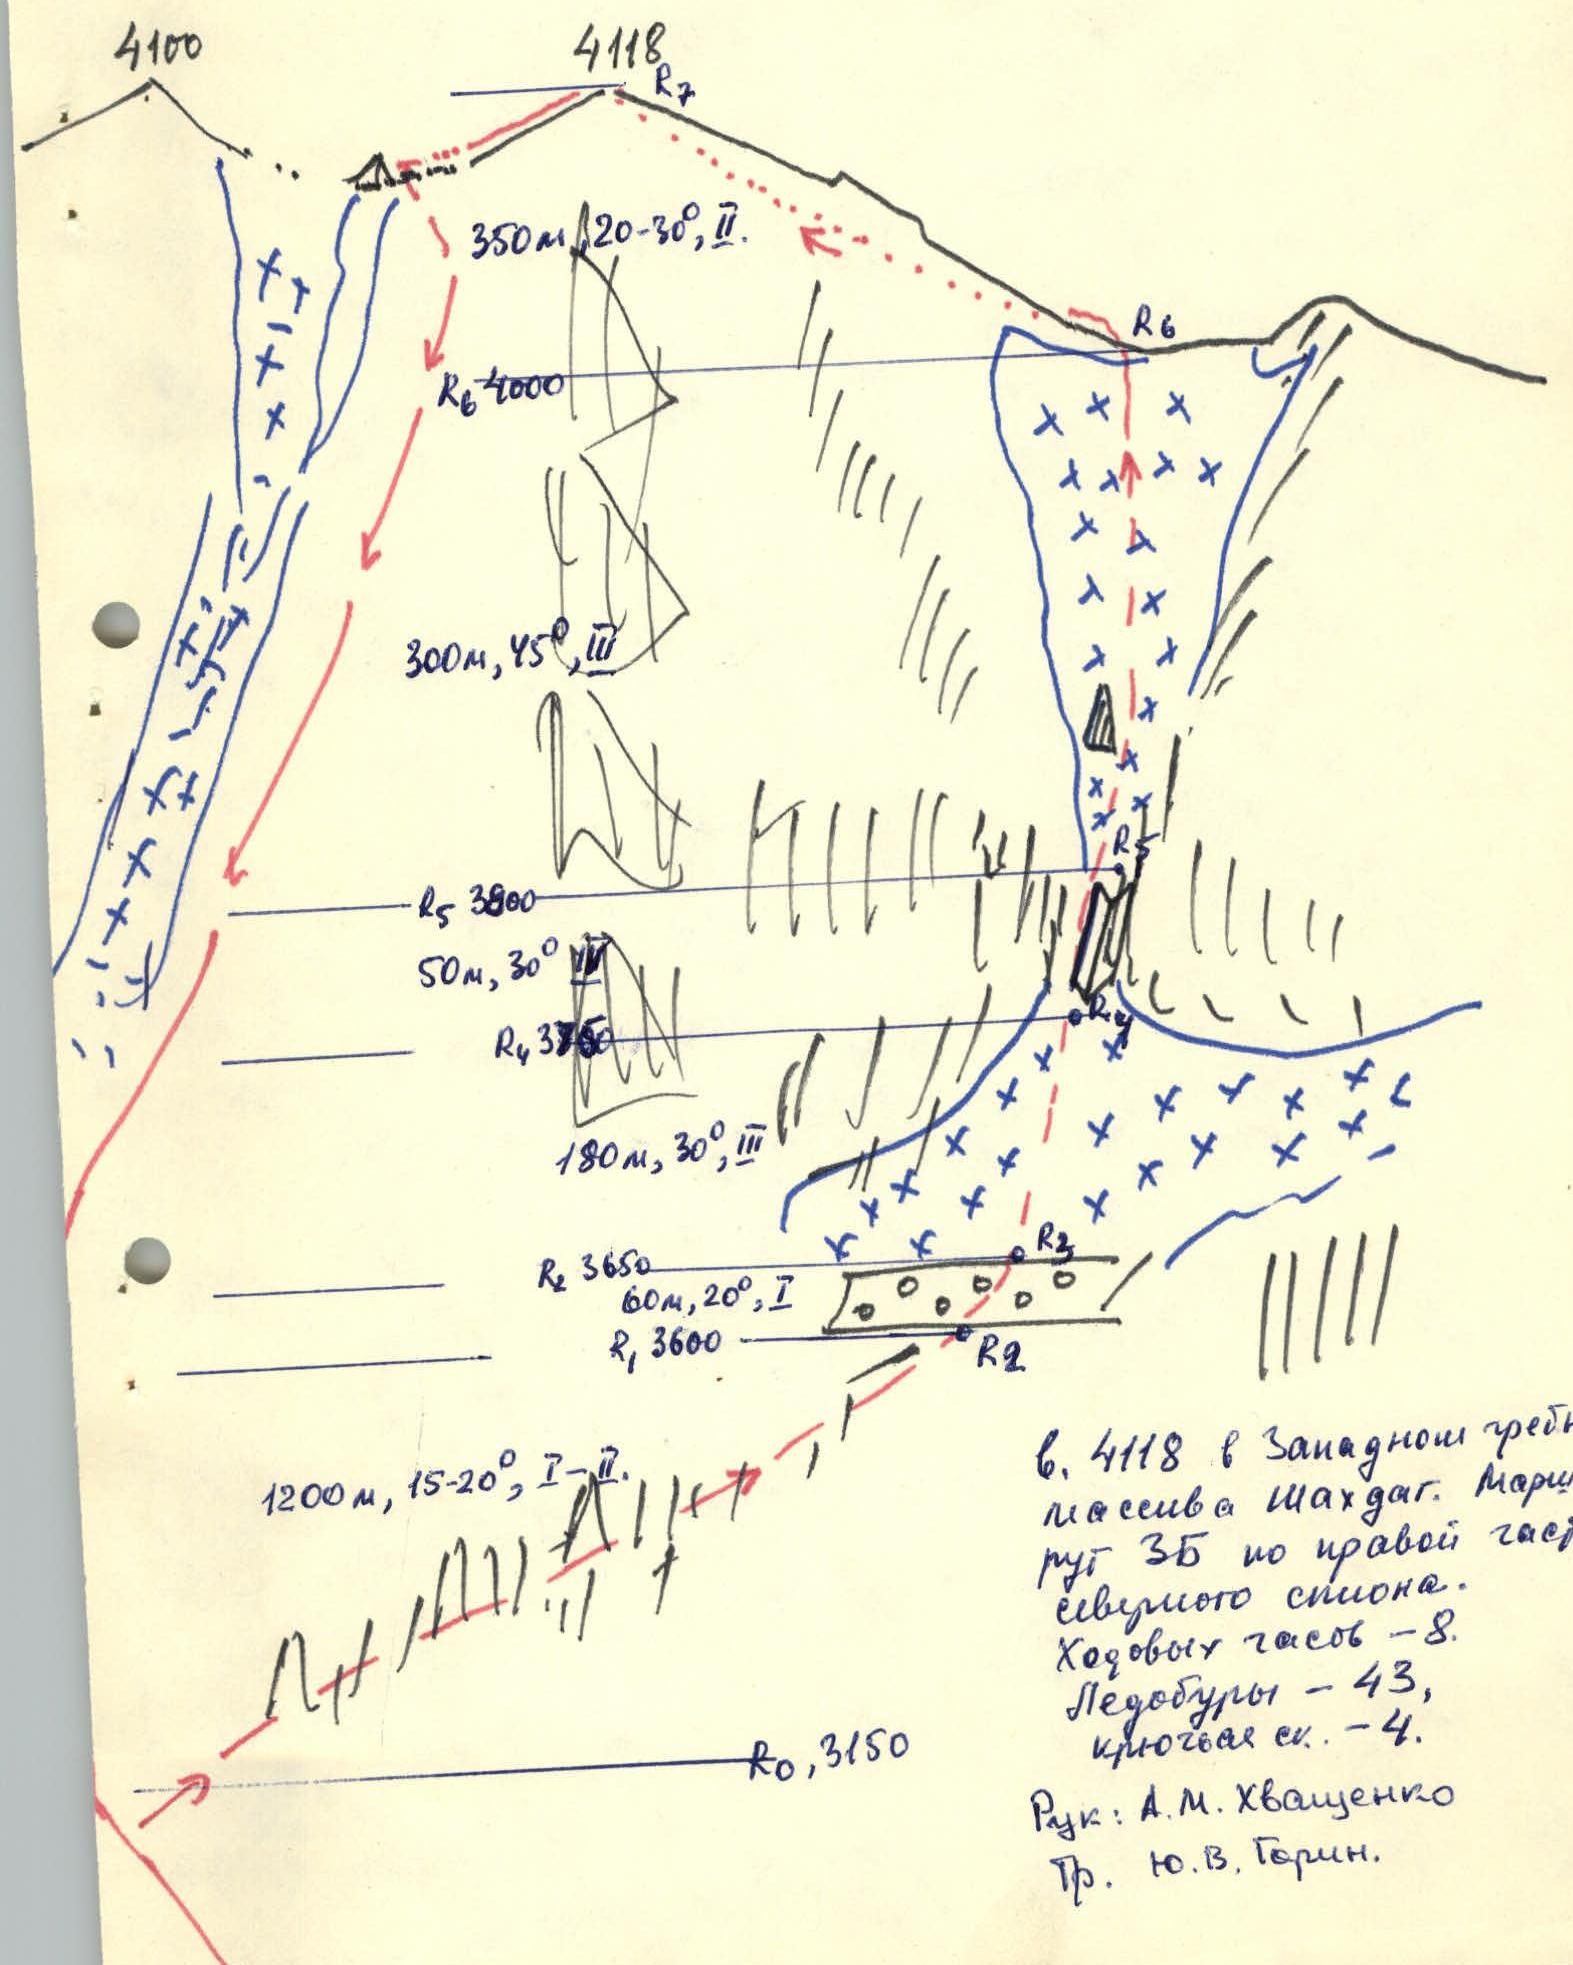 4100
4118
R7
350м, 20-30°, II.
R6
R6 4000
300м, 45°, III
R5
R5 3800
50м, 30° IV
R4
R4
180м, 30°, III
R3
R2 3650
60м, 20°, I
R1 3600
R2
1200м, 15-20°, I-II.
в. 4118 в Западном гребн
массива Шахдаг. Марш
рут 3Б по правой част
северного склона.
Ходовых часов - 8.
Ледобуры - 43,
крючья ск. - 4.
R0, 3150
Рук: А.М. Хващенко
Тр. Ю.В. Горин.